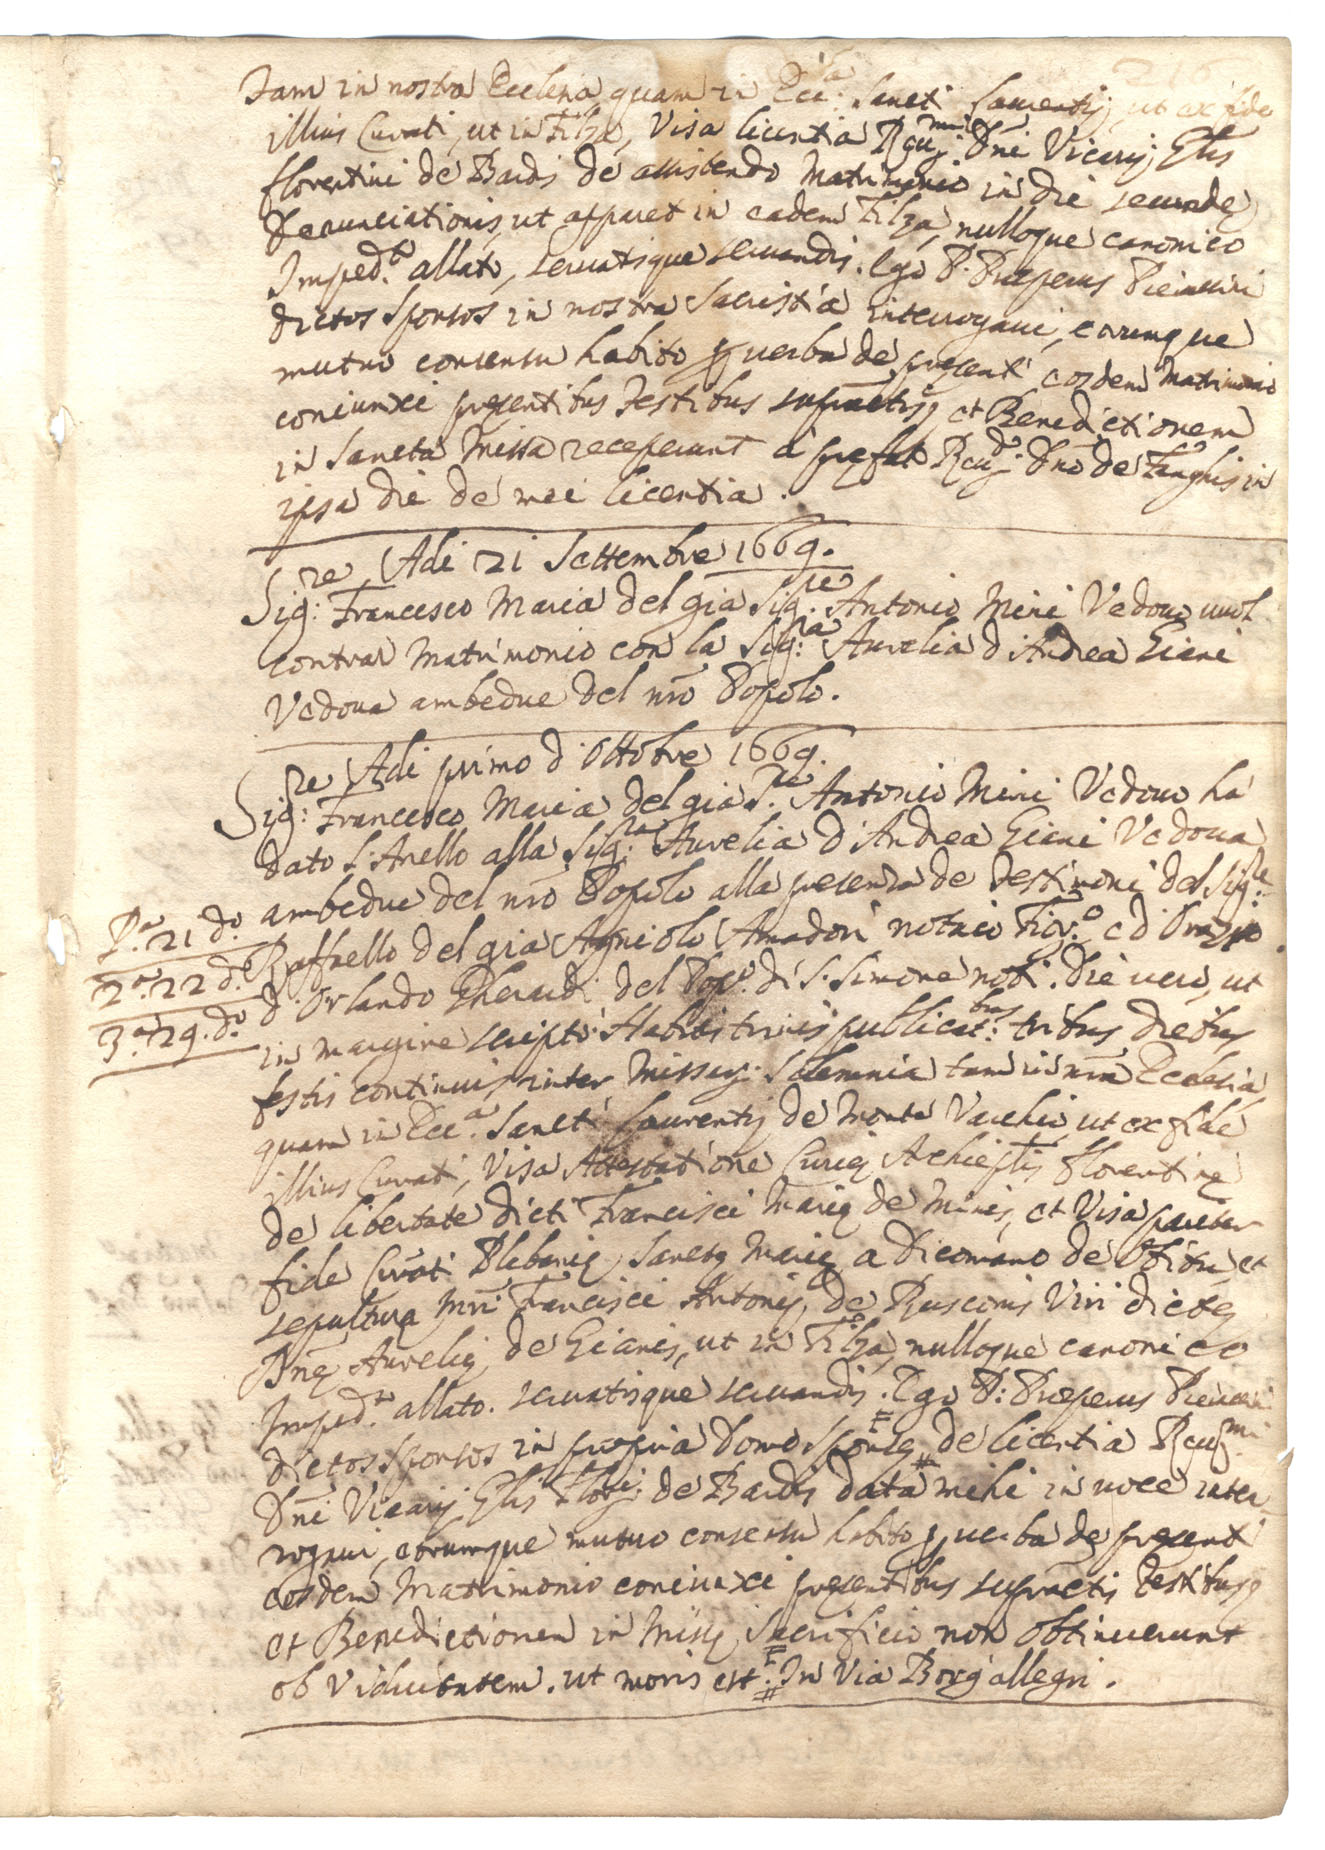 Tam in nostra Ecclesia, quam in Ecc:a Sancti Laurentij ut ex fide
illius Curati, ut in Filza, Visa licentia R.mi Dñi Vicarij Glis
florentini de Bardis de assistendo Matrimonio in die secundę
denunciationis, ut apparet in eadem Filza, nulloque canonico
Imped.to allato, servatisque servandis. Ego P. Prosperus
dictos sponsos in nostra Sacristia interrogavi, eorumque
mutuo consensu habito p verba de pręsenti eosdem Matrimonio
coniunxi pręsentibus Testibus supradictis, et Benedictionem
in Sancta Missa receperunt a pręfato R.do Dño de Fanghis in
ipsa die de mei licentia.
Adi 21 Settembre 1669.
Sig:re Francesco Maria del già Sig:re Antonio Mini Vedovo vuol
contrar Matrimonio con la Sig:ra Aurelia d'Andrea Giani
Vedova ambedue del nrõ Popolo.
Adi primo d'Ottobre 1669.
Sig:re Francesco Maria del già S.re Antonio Mini Vedovo hà
dato l'Anello alla Sig:ra Aurelia d'Andrea Giani Vedova
ambedue del nrõ Popolo alla presenza de Testimoni del Sig:re
P.a 21 do.
Raffaello del già Agniolo Amadori notaio Fior:o e d'Orazio
2.a 22 do.
d'Orlando Gherardi del Pop.o di S. Simone noti. Die vero, ut
3.a 29. do.
in margine scripto Habitis trinis publicat:bus tribus diebus
festis continuis inter Missarũ Solemnia tam in nrã Ecclesia
quam in Ecc.a Sancti Laurentij de Monte Varchio ut ex fide
illius Curati, Visa Attestatione Curię Archieplis florentinę
de libertate dicti Francisci Marię de Minis, et Visa pariter
fide Curati Plebanię Sanctę Marię a Dicomano de Obitu, et
sepultura Mri Francisci Antonij de Rusconis Viri dictę
Dnę Aurelię de Gianis, ut in Filza, nulloque canonico
Imped.to allato. servatisque servandis. Ego P: Prosperus
dictos sponsos in propria Domo sponsę de licentia R.mi
Dñi Vicarij Glis Flor.ni de Bardis data mihi in voce inter
rogavi, eorumque mutuo consensu habito p verba de pręsenti
eosdem Matrimonio coniunxi pręsentibus supradictis Testibus,
et Benedictionem in Missę Sacrificio non obtinuerunt
ob Viduitatem. ut moris est. In Via Borg'allegri.